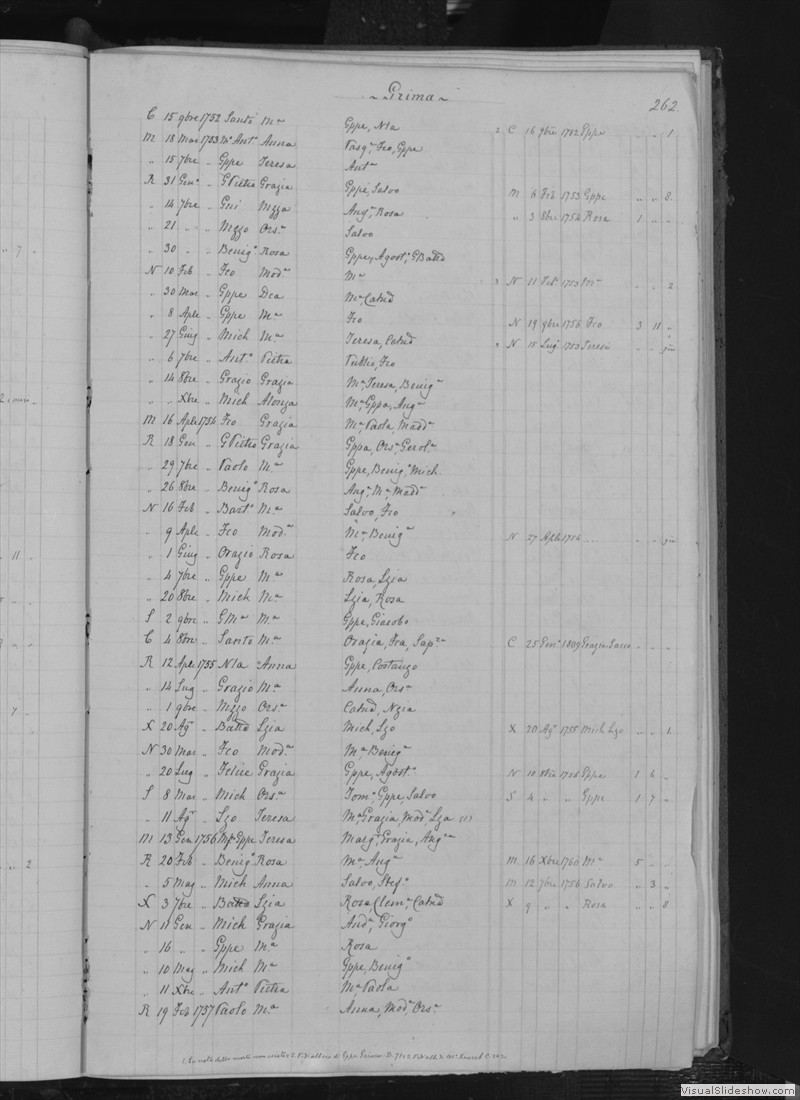 ~ Grima ~
262.
C 15 9bre 1752 Santo Ma Gppe, Nla 2 C 16 9bre 1782 Gppe " " 1
M 18 Mar 1753 Mo Anto Anna Pasqe, Fco, Gppe
" 15 7bre " Gppe Teresa Anta
R 31 Geno " GPietro Grazia Gppe, Salvo M 6 Feb 1753 Gppe " " 8
" 14 7bre " Gni Mzza Anga, Rosa " 3 8bre 1754 Rosa 1 " "
" 21 " " Mzzo Orsa Salvo
" 30 " " Benigo Rosa Gppe, Agosto, GBatta
N 10 Feb " Fco Moda Ma N 11 Feb 1753 Ma " " 2
" 30 Mar " Gppe Dea Ma, Catna
" 8 Aple " Gppe Ma Fco N 19 9bre 1756 Fco 3 11 "
" 27 Giug " Mich Ma Teresa, Catna N 15 Lug 1753 Teresa
" 6 7bre " Anto Pietra Publio, Fco
" 14 8bre " Grazio Grazia Ma, Teresa, Beniga
" " Xbre " Mich Alonza Ma, Gppa, Anga
M 16 Aple 1754 Fco Grazia Ma, Paola, Madda
R 18 Gen " GPietro Grazia Gppa, Orsa, Gerola
" 29 7bre " Paolo Ma Gppe, Benigo, Mich
" 26 8bre " Benigo Rosa Anga, Ma, Madda
N 16 Feb " Barto Ma Salvo, Fco
" 9 Aple " Fco Moda Ma, Beniga N 27 Aple 1754 ....
" 1 Giug " Orazio Rosa Fco
" 4 7bre " Gppe Ma Rosa, Lzia
" 20 8bre " Mich Ma Lzia, Rosa
S 2 9bre " GMa Ma Gppe, Giacobo
C 4 8bre " Santo Ma Orazia, Fca, Sapza C 25 Geno 1809 Grazia
R 12 Aple 1755 Nla Anna Gppe, Costanzo
" 14 Lug " Grazio Ma Anna, Orsa
" 1 9bre " Mzzo Orsa Catna, Nzia
X 20 Ago " Batta Lzia Mich, Lzo X 20 Ago 1755 Mich Lzo " " 1
N 30 Mar " Fco Moda Ma, Beniga
" 20 Lug " Felice Grazia Gppe, Agosto N 10 8bre 1756 Gppe 1 6 "
S 8 Mar " Mich Orsa Tomo, Gppe, Salvo S 4 " " Gppe 1 7 "
" 11 Ago " Lzo Teresa Ma, Grazia, Moda, Lza (1)
M 13 Gen 1756 Gppe Teresa Marga, Grazia, Anga
R 20 Feb " Benigo Rosa Ma, Anga M 16 Xbre 1760 Ma 5 " "
" 5 Mag " Mich Anna Salvo, Stefo M 12 7bre 1756 Salvo " 3 "
X 3 7bre " Batta Lzia Rosa, Clema, Catna X 9 " " Rosa " " 8
N 11 Gen " Mich Grazia Anda, Giorgo
" 16 " " Gppe Ma Rosa
" 10 Mag " Mich Ma Gppe, Benigo
" 11 Xbre " Anto Pietra Ma, Paola
R 19 Feb 1757 Paolo Ma Anna, Moda, Orsa
VisualSlideshow.com